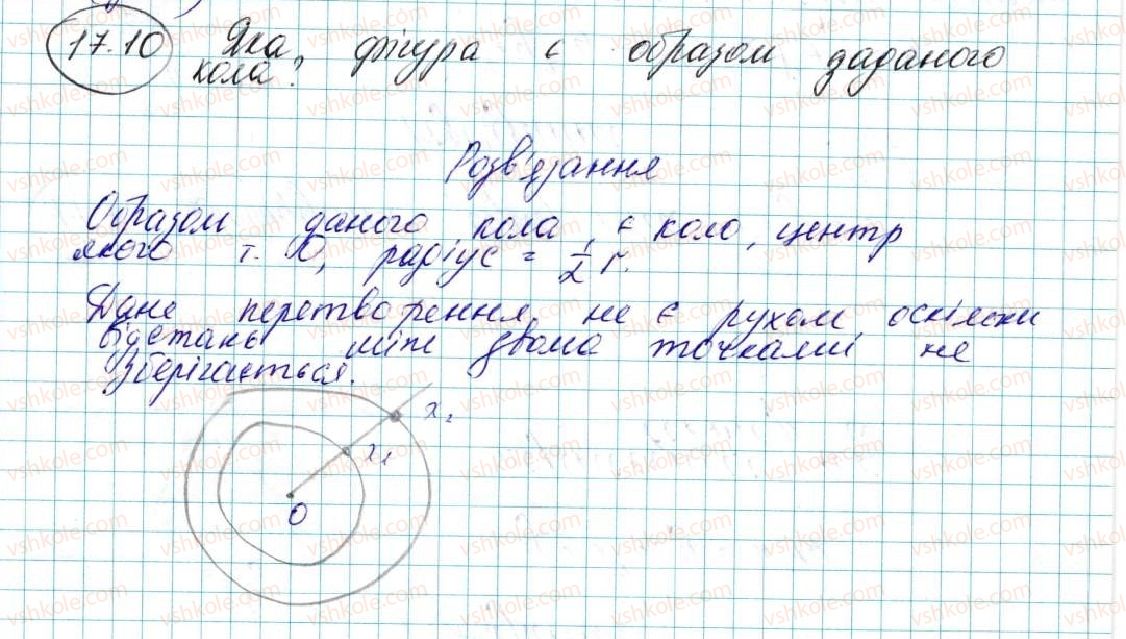 17.10 Яка фігура є образом даданого
кола?
Розв'язання
Образом даного кола є коло, центр
якого т. О, радіус = 1/2 r.
Дане перетворення не є рухом, оскільки
відстань між двома точками не
зберігається.
X₂
X₁
O